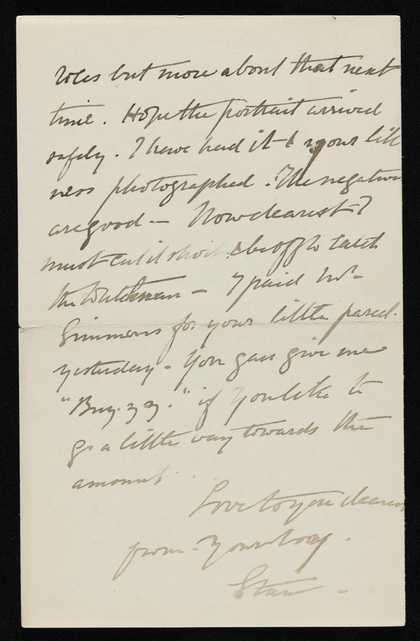 but more about that next
time. Hope the portrait arrived
safely. I have had it & your like
ness photographed. The negatives
are good — Now dearest I
must cut it short & be off to catch
the — I paid Mr
Simmons for your little parcel.
yesterday — You can give me
" " if you like to
go a little way towards the
amount.
Love to you dearest
from Your loving